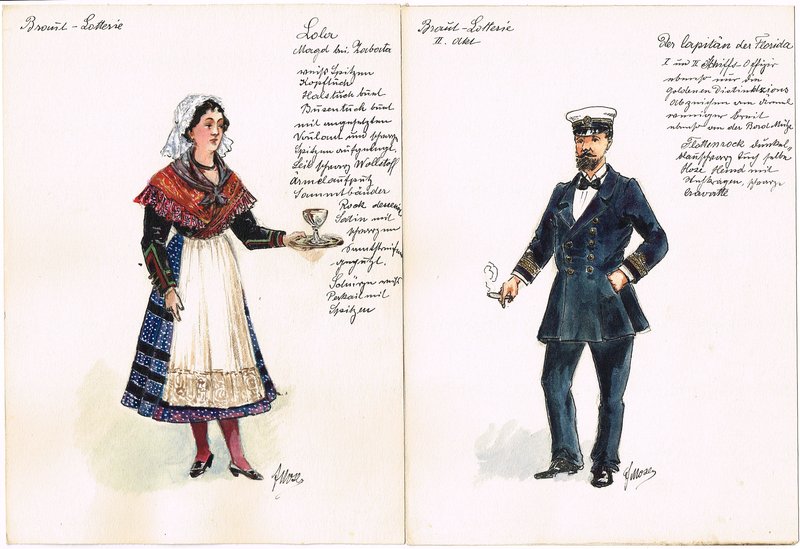 Braut-Lotterie
Lola
Magd bei Zaboeta
weiß Spitzen
Kopftuch
Halstuch bunt
Busentuch bunt
mit angesetzten
Voulant und schwarz
Spitzen aufgelegt.
Leib schwarz Wollstoff
Ärmelaufputz
Sammtbänder
Rock
Satin mit
schwarzen
Samtstreifen
geputzt.
Schürze weiß
Perkail mit
Spitzen
Braut-Lotterie
II. Akt
Der Capitän der Florida
I und II Schiffs-Offizir
ebenso nur die
goldenen Distinktzions
abzeichen am Ärmel
weniger breit
ebenso an der Bord Mütze
Flottenrock dunkel,
blauschwarz Tuch selbe
Hose Hemd mit
Stehkragen, schwarze
Cravatte